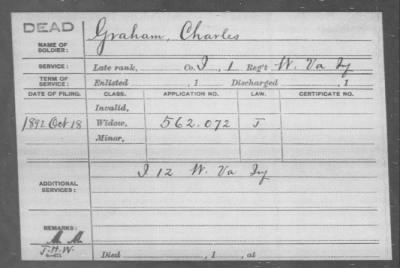 DEAD
NAME OF SOLDIER: Graham, Charles
SERVICE: Late rank, Co. I, 1 Reg't W. Va Iy
TERM OF SERVICE: Enlisted , 1 Discharged , 1
DATE OF FILING. CLASS. APPLICATION NO. LAW. CERTIFICATE NO.
Invalid,
1892 Oct 18 Widow, 562.072 J
Minor,
ADDITIONAL SERVICES: I 12 W. Va Iy
REMARKS:
J.H.W.
Died , 1 , at